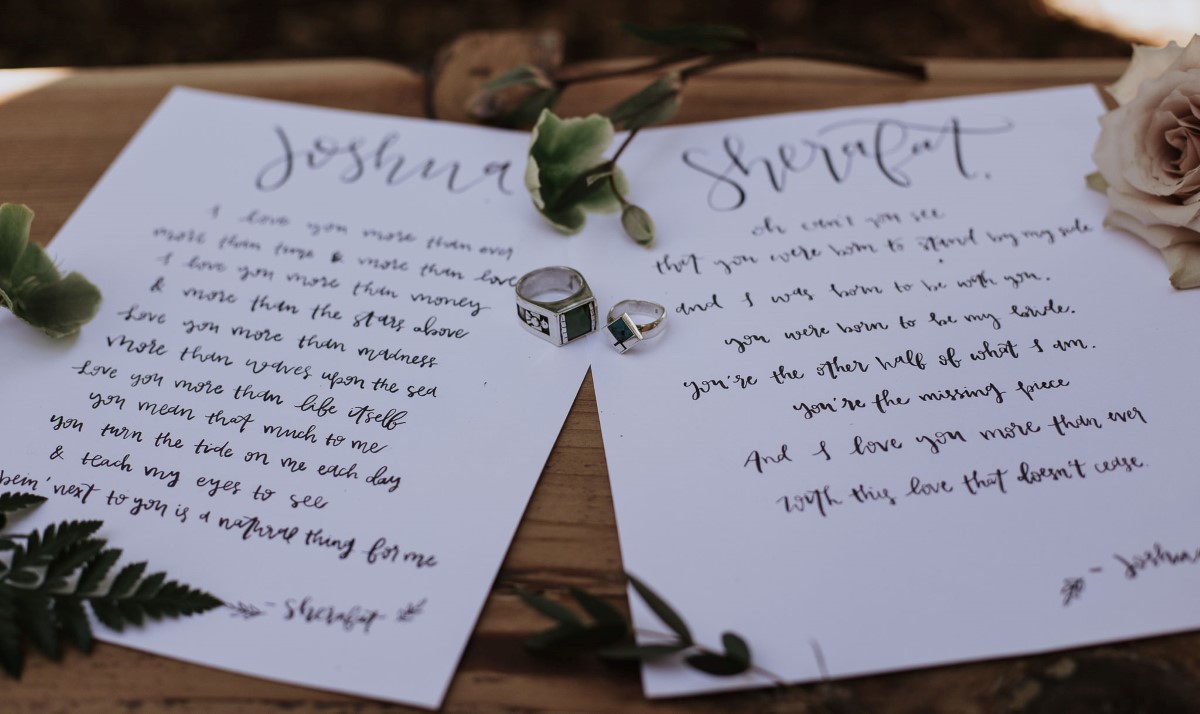 Joshua
I love you more than ever
more than time & more than love
I love you more than money
& more than the stars above
Love you more than madness
more than waves upon the sea
Love you more than life itself
you mean that much to me
you turn the tide on me each day
& teach my eyes to see
bein' next to you is a natural thing for me
- Sherafat
Sherafat.
oh can't you see
that you were born to stand by my side
and I was born to be with you.
you were born to be my bride.
you're the other half of what I am.
you're the missing piece
And I love you more than ever
with this love that doesn't cease.
- Joshua